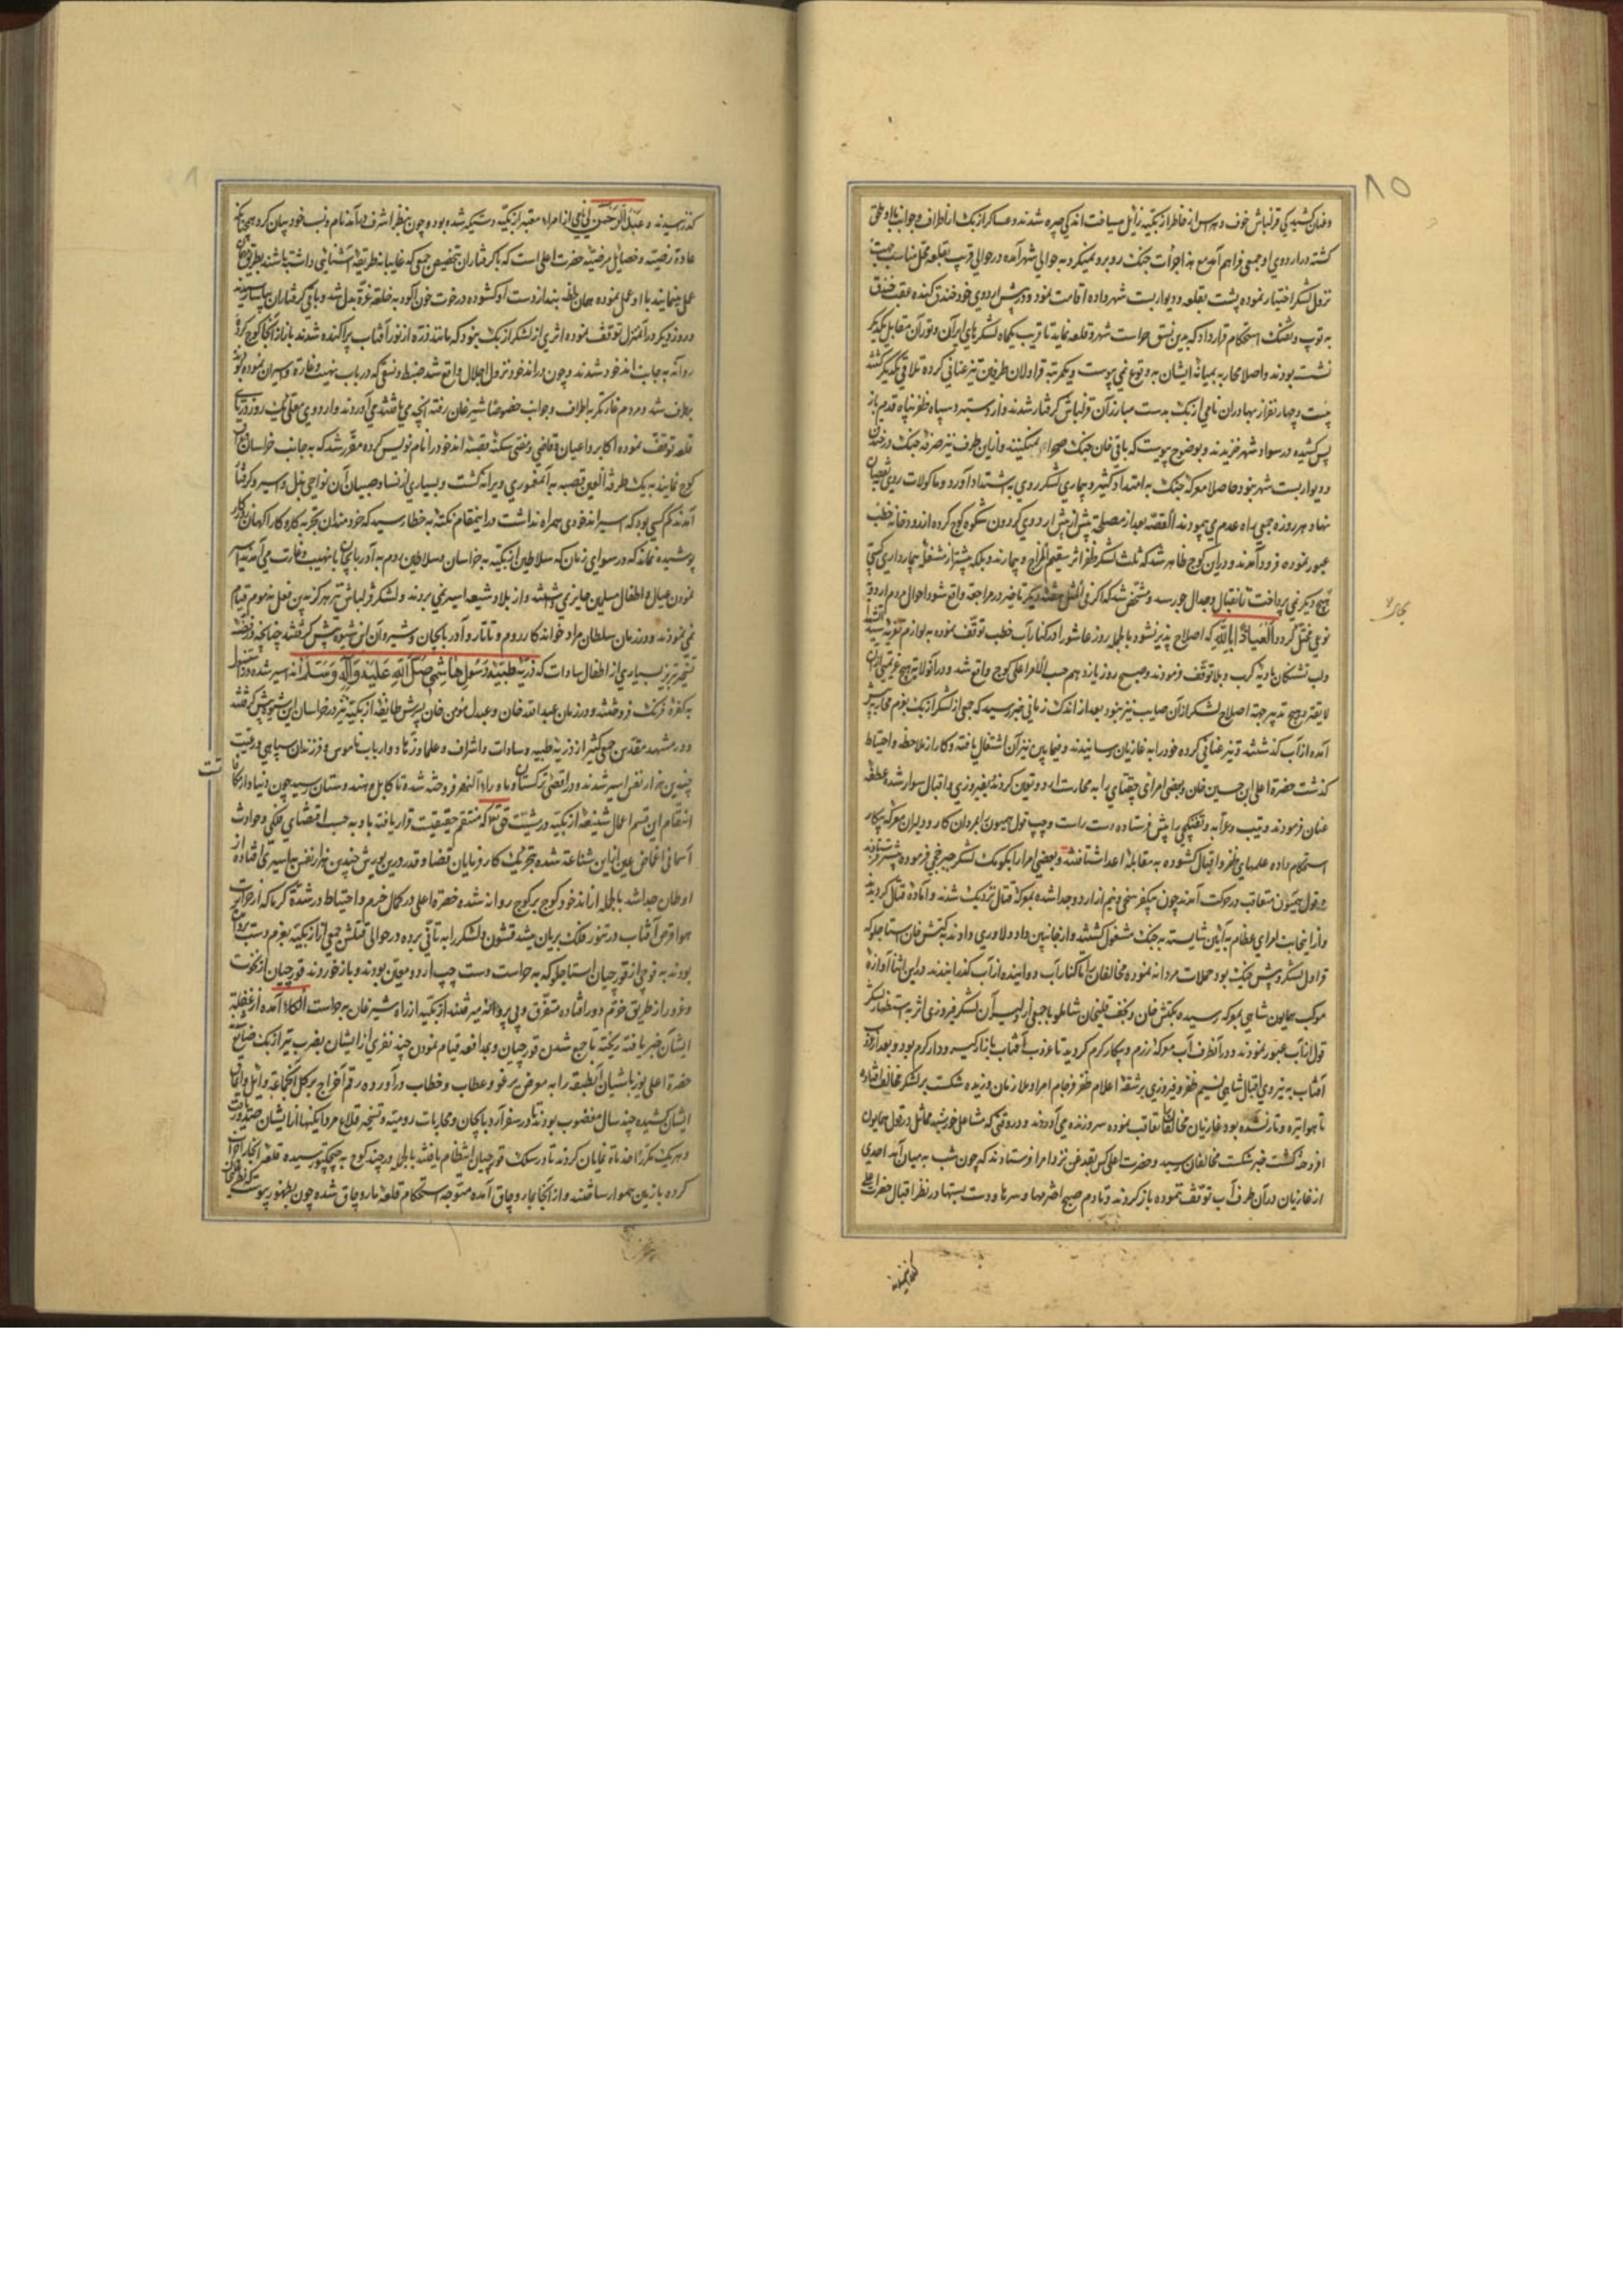 ٨٥
وعنان کشیدکی قزلباش خوف و هراس از خاطر ازبکیه زایل ساخت اندکی چیره شدند و عساکر ازبک از اطراف و جوانب
کشته در اردوی او جمعی فراهم آمد مع هذا جرأت جنک روبرو نمیکرد به حوالی شهر آمده در حوالی قریب بقلعه محل مناسب جهت
نزول لشکر اختیار نموده پشت بقلعه و دیواربست شهر داده اقامت نمود و در پیش اردوی خود خندق کنده عقب خندق
به توپ و تفنک استحکام قرار داد که بدین نسق حراست شهر و قلعه نماید تا قریب یکماه لشکرهای ایران و توران مقابل یکدیکر
نشسته بودند و اصلا محاربه بمیانه ایشان به وقوع نمی پیوست و یکمرتبه قراولان طرفین تیز عنانی کرده تلاقی یکدیکر کشتند
بیست و چهار نفر از بهادران نامی ازبک بدست مبارزان قزلباش کرفتار شدند و از دستبرد سپاه ظفر پناه قدم باز
پس کشیده در سواد شهر خزیدند و بوضوح پیوست که باقی خان جنک صحرا نمیکند و از این طرف نیز صرفه جنک در خندق
و دیواربست شهر نبود حاصلا معرکه جنک به امتداد کشید و بیماری لشکر روی به اشتداد آورد و ماکولات روی بنقصان
نهاد و هر روزه جمعی راه عدم می پیمودند القصه بعد از مصلحت بینی از پیش اردوی کردون شکوه کوچ کرده از رودخانه خطب
عبور نموده فرود آمدند و در این کوچ ظاهر شد که ثلث لشکر ظفر اثر سقیم المزاج و بیمارند و بلکه بیشتر از مشغله بیمارداری کسی
بهیچ دیکر نمی پرداخت تا بقتال و جدال چه رسد و مشخص شد که اکر فی المثل هفته دیکر تاخیر در مراجعه واقع شود احوال مردم اردو
نوعی مختل کردد العیاذ بالله که اصلاح پذیر نشود بالجمله روز عاشورا در کنار آب خطب توقف نموده به لوازم تعزیه سید الشهدا
ولب تشنکان بادیه کرب و بلا توقف فرمودند و صبح روز یازدهم حسب الامر اعلی کوچ واقع شد
آمده از آب کذشتند و تیز عنانی کرده خود را به غازیان رسانیدند و فیمابین نیران اشتعال یافته و کار از ملاحظه و احتیاط
کذشت حضرت اعلی ابن حسین خان و بعضی امرای چغتای را به محارست اردو تعیین کردند بفیروزی و اقبال سوار شده عطف
عنان فرمودند
استحکام داده علمهای ظفر و اقبال کشوده به مقابله اعدا شتافتند و بعضی امرا را بکومک لشکر چرخچی فرموده پیشتر فرستادند
و قول همیون متعاقب در حرکت آمدند چون میکفرسخی و نیم از اردو جدا شده بمعرکه قتال نزدیک شدند و آماده قتال کردیدند
و از اینجانب امرای عظام به آئین شایسته به جنک مشغول کشتند و از جانبین داد دلاوری دادند
قراول لشکر و پیش جنک بود حملات مردانه نموده مخالفان را تا کنار آب دوانیده از آب کذرانیدند در این اثنا آوازه
موکب همایون شاهی بمعرکه رسیده بکتش خان و نجف قلیخان شاملو با جمعی از دلیران لشکر فیروزی اثر به استظهار لشکر
قول از آب عبور نمودند و در آنطرف آب معرکه رزم و پیکار کرم کردید تا غروب آفتاب بازار کیر و دار کرم بود و بعد از غروب
آفتاب به نیروی اقبال شاهی نسیم ظفر و فیروزی بر شقه اعلام ظفر فرجام امرا و ملازمان وزیده شکست بر لشکر مخالف افتاد
تا هوا تیره و تار نشده بود غازیان مخالفان را تعاقب نموده سر و زنده می آوردند و در وقتی که مشاعل خورشید مماثل در قول همایون
افروخته کشت خبر شکست مخالفان رسید و حضرت اعلی کس بقدغن نزد امرا فرستادند که چون شب به میان آمد احدی
از غازیان در آن طرف آب توقف ننموده باز کردند و تا دم صبح اخترمها و سرها و دست بستها در نظر اقبال حضرت اعلی
کذرانیدند
کذرانیدند و عبدالرحمن بی نامی از امراء معتبر ازبکیه دستکیر شده بود و چون بنظر اشرف درآمد نام و نسب خود بیان کرد همچنانکه
عادة رضیه و خصایل مرضیه حضرت اعلی است که با کرفتاران بتخصیص جمعی که غایبانه طریقه آشنائی داشته باشند بطریق
عمل مینمایند با او عمل نموده همان لحظه بند از دست او کشوده و رخوت خون آلود به خلعت عزة بدل شد و باقی کرفتاران بیاسا رسیدند
و روز دیکر در آنمنزل توقف نموده اثری از لشکر ازبک نبود که مانند ذره از نور آفتاب پراکنده شدند باز از آنجا کوچ کرده
روانه به جانب اندخود شدند و چون در اندخود نزول اجلال واقع شد ضبط و نسقی که در باب نهب و غارة و اسیر ان نموده بود
برطرف شد و مردم غارتکر به اطراف و جوانب خصوصا شبرغان رفته آنچه می یافتند می آوردند و اردوی معلی یک روز در پای
قلعه توقف نموده اکابر و اعیان و قاضی و مفتی و سکنه قصبه اندخود را نام نویس کرده مقرر شد که به جانب خراسان
کوچ نمایند به یک طرفة العین قصبه به آن معموری ویرانه کشت و بسیاری از نساء و صبیان آن نواحی ذلیل و اسیر و کرفتار
آمدند کم کسی بود که اسیر اندخودی همراه نداشت در اینمقام نکته به خاطر رسید که خردمندان تجربه کار و کار آکهان روزکار
پوشیده نماند که در سوای زمان که سلاطین ازبکیه به خراسان و سلاطین روم به آذربایجان بنهب و غارت می آمدند اسیر
نمودن عیال و اطفال مسلمین جایز نمی داشتند و از بلاد شیعه اسیر نمی بردند و لشکر قزلباش نیز هرکز به این فعل مذموم قیام
نمی نمودند و در زمان سلطان مراد خواندکار روم و تاتار و آذربایجان و شیروان این شیوه پیش کرفتند چنانچه در وقت
تسخیر تبریز بسیاری از اطفال سادات که ذریه طیبه رسول هاشمی صلی الله علیه و آله و سلم اند اسیر شده در استنبول
به کفره فرنک فروختند و در زمان عبدالله خان و عبدالمؤمن خان پسرش طایفه ازبکیه نیز در خراسان این شیوه پیش کرفتند
و در مشهد مقدس جمع کثیر از ذریه طیبه و سادات و اشراف و علما و زهاد و ارباب ناموس و فرزندان سپاهی و رعیت
چندین هزار نفس اسیر شدند و در اقصی ترکستان و ماوراء النهر فروخته شده تا کابل و هندوستان رسید چون دنیا دار مکافات
انتقام این قسم اعمال شنیعه ازبکیه در مشیت حق تع که منتقم حقیقیت قرار یافته باد به حسب اقتضای فلکی و حوادث
آسمانی اغماض عین از این شناعة شده بتحریک کارفرمایان قضا و قدر در این یورش چندین هزار نفس به اسیری افتاده از
اوطان جدا شد بالجمله از اندخود کوچ بر کوچ روانه شده حضرة اعلی در کمال حزم و احتیاط در شدة کرما که از حرارت
هوا قرص آفتاب در تنور فلک بریان میشد قشون و لشکر را به تأنی برده در حوالی قتلش جمعی از ازبکیه بعزم دست برد آمده
بودند به فوجی از قورچیان استاجلو که به حراست دست چپ اردو معین بودند و باز خوردند قورچیان از نخوت
و غرور از طریق حزم دور افتاده متفرق و بی پروا میرفتند ازبکیه از راه شبرغان به حراست الکاء آمده از غفلة
ایشان خبر یافته ریخته تا جمع شدن قورچیان و بمدافعه قیام نمودن چند نفری از ایشان بضرب تیر ازبک ضایع شد
حضرة اعلی یوزباشیان آنطبقه را به معرض برغو و عتاب و خطاب درآورده رقم اخراج بر کل آنجماعة
ایشان کشیده چند سال مغضوب بودند تا در سفر آذربایجان و محاربات رومیه و تسخیر قلاع مردانکیها از ایشان صدور یافت
و هر یک مکررا خدمات نمایان کردند تا در سلک قورچیان انتظام یافتند بالجمله در چند کوچ به چیچکتو رسیده قلعه آنجا را خراب
کرده با زمین هموار ساختند و از آنجا به ماروچاق آمده متوجه استحکام قلعه ماروچاق شده چون بظهور پیوست که